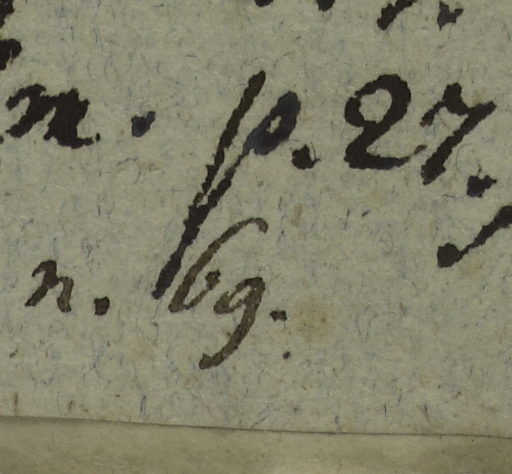 m. p. 27.
n. 69.